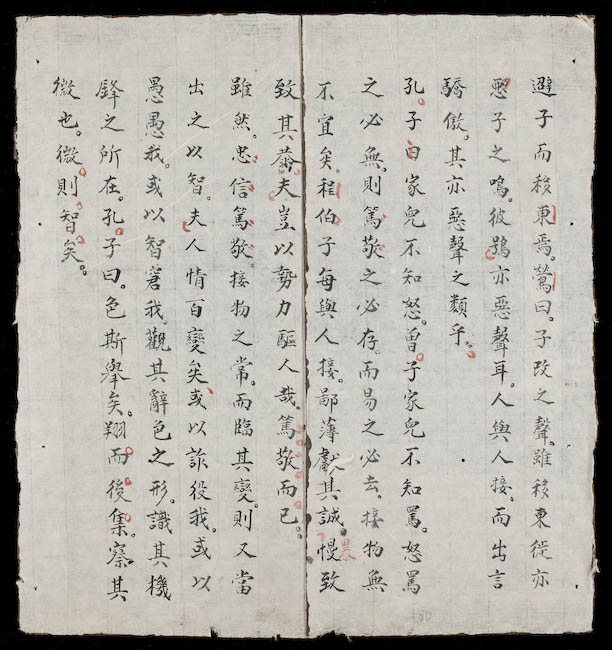 避子而移東焉。鶯曰。子改之聲。雖移東徙亦
惡子之鳴。彼鴞亦惡聲耳。人與人接。而出言
驕傲。其亦惡聲之類乎。
孔子曰家兒不知怒。曾子家兒不知罵。怒罵
之必無。則篤敬之必存。而易之必去。接物無
不宜矣。程伯子每與人接。鄙薄獻其誠。慢致
暴
致其恭。夫豈以勢力驅人哉。篤敬而已。
雖然。忠信篤敬。接物之常。而臨其變。則又當
出之以智。夫人情百變矣。或以詐役我。或以
愚愚我。或以智窘我。觀其辭色之形。識其機
鋒之所在。孔子曰。色斯舉矣。翔而後集。察其
微也。微則智矣。